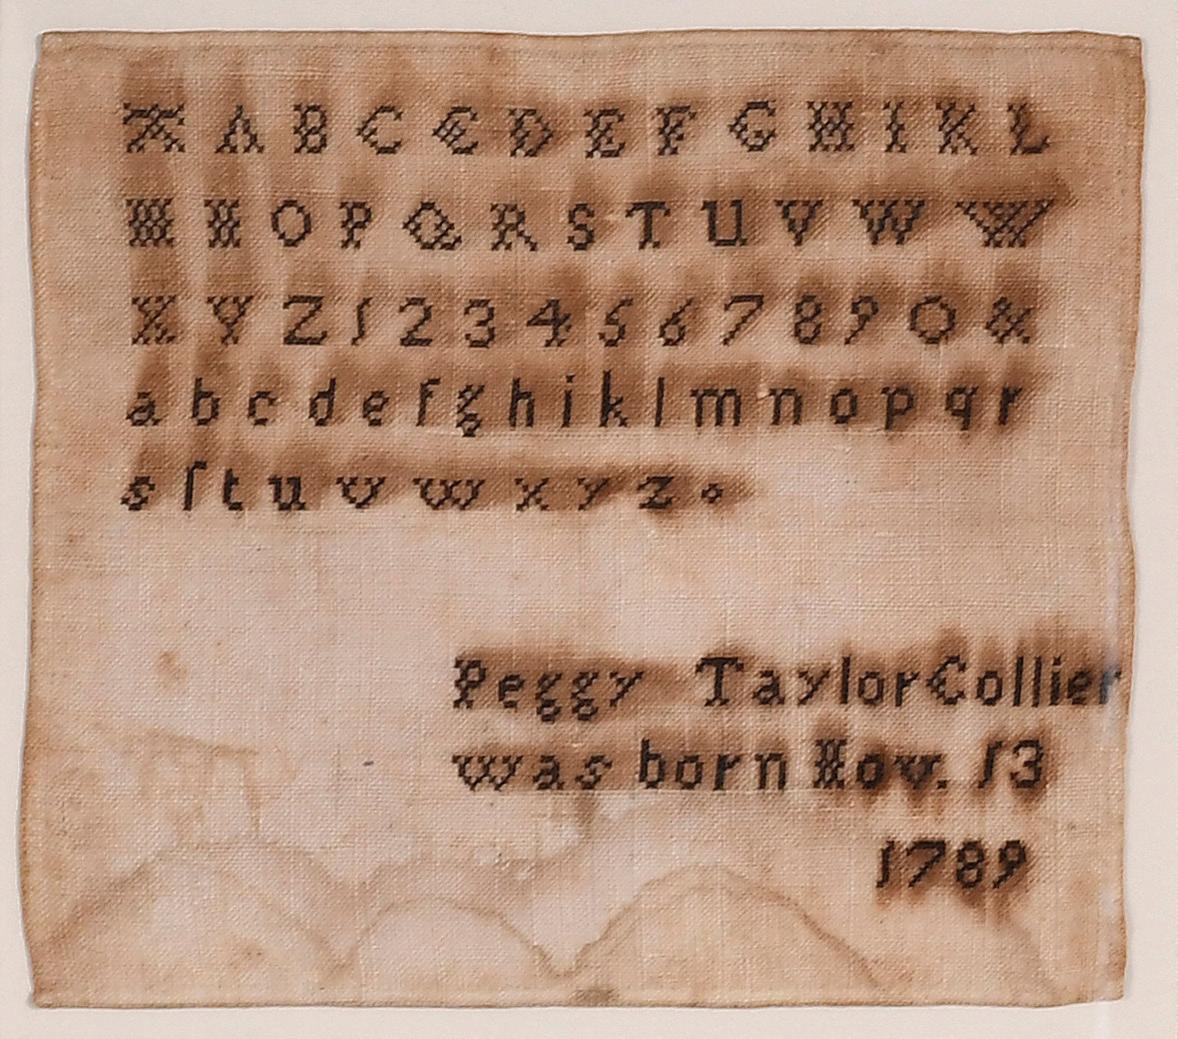 A A B C C D E F G H I K L
M N O P Q R S T U V W W
X Y Z 1 2 3 4 5 6 7 8 9 0 &
a b c d e f g h i k l m n o p q r
s ſ t u v w x y z
Peggy Taylor Collier
was born Nov. 13
1789